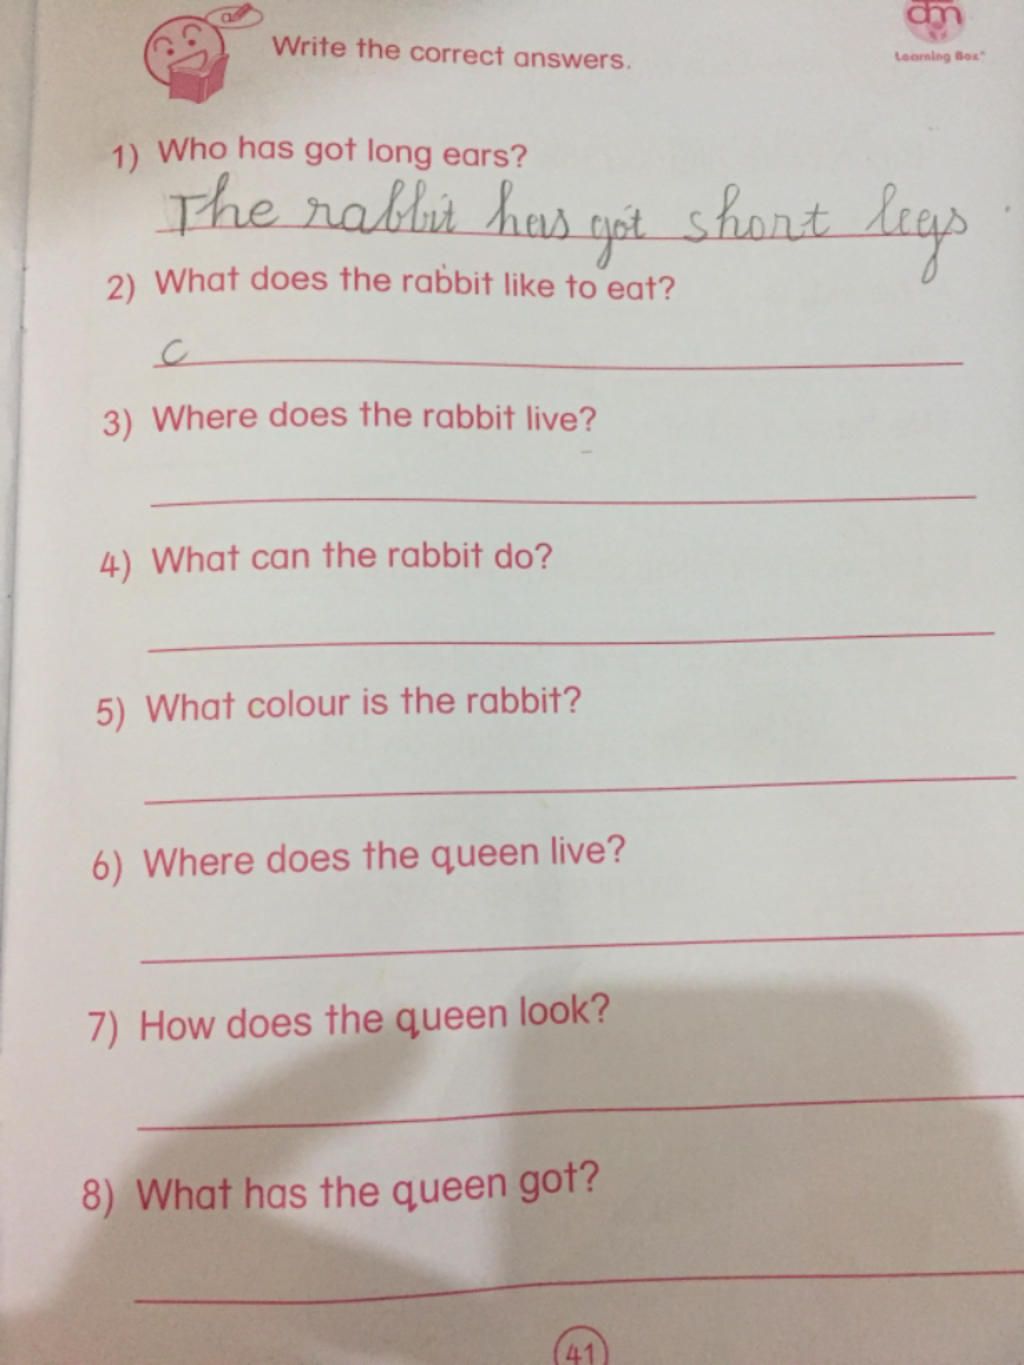 a
Write the correct answers.
dm
Learning Box®
1) Who has got long ears?
The rabbit has got short legs
2) What does the rabbit like to eat?
c
3) Where does the rabbit live?
4) What can the rabbit do?
5) What colour is the rabbit?
6) Where does the queen live?
7) How does the queen look?
8) What has the queen got?
41